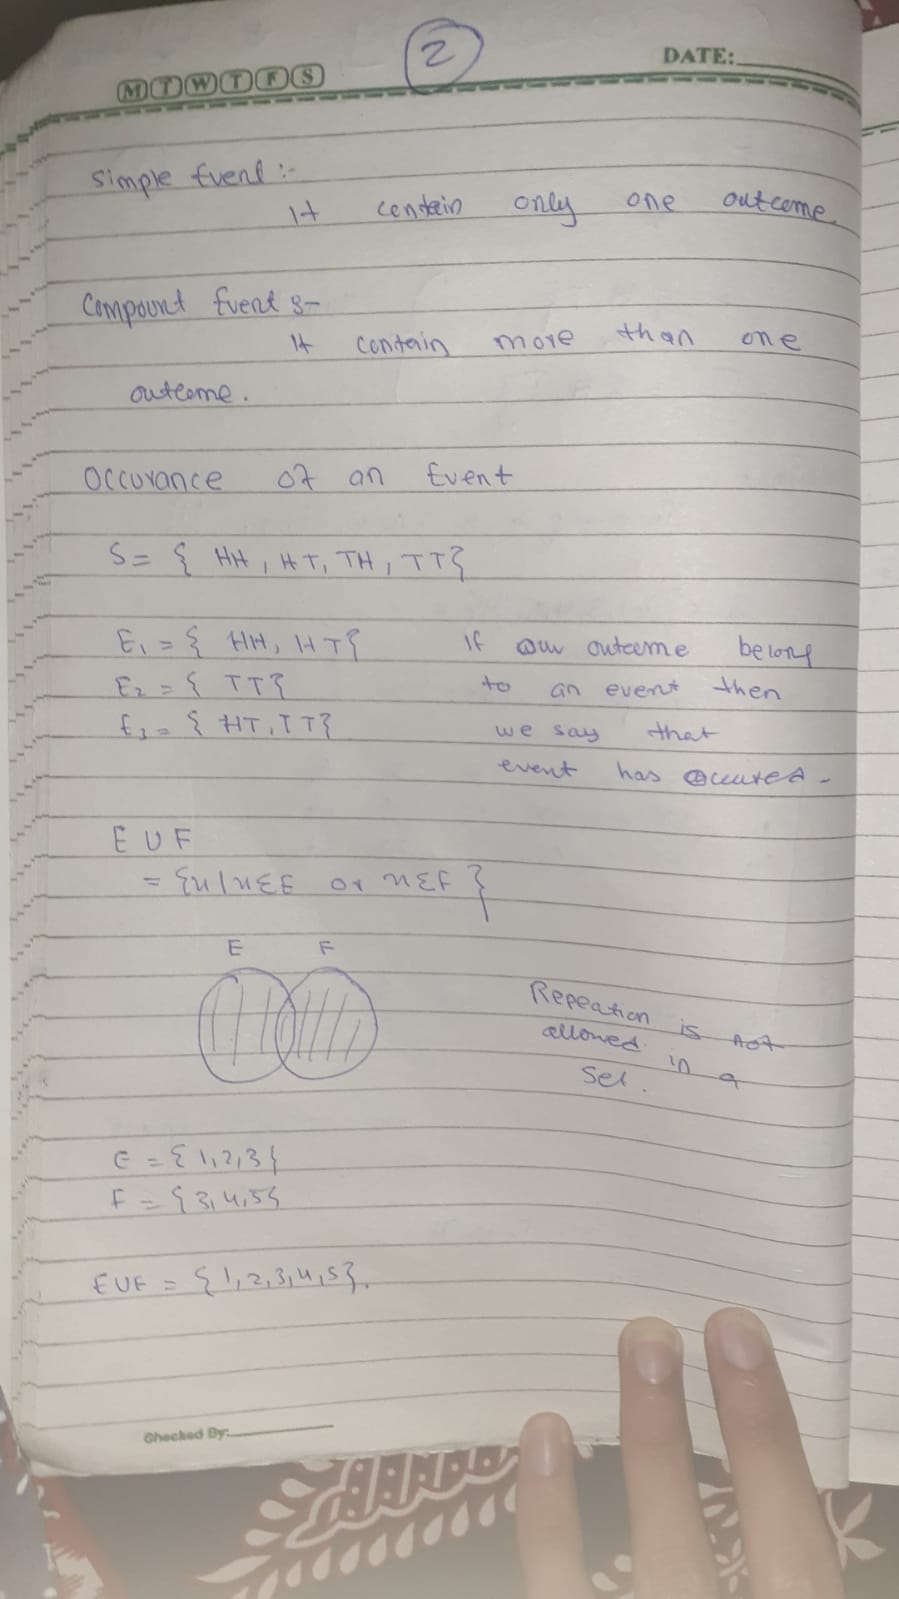 2
M T W T F S
DATE:
Simple Event :-
It contain only one outcome.
Compount Event :-
It contain more than one
outcome.
Occurance of an Event
S = { HH, HT, TH, TT}
E₁ = { HH, HT} If our outcome belong
E₂ = { TT} to an event then
E₃ = { HT, TT} we say that
event has occured -
E U F
= {x/x∈E or x∈F}
E F
Repeation is not
allowed in a
Set.
E = {1,2,3}
F = {3,4,5}
EUF = {1,2,3,4,5}.
Checked By: